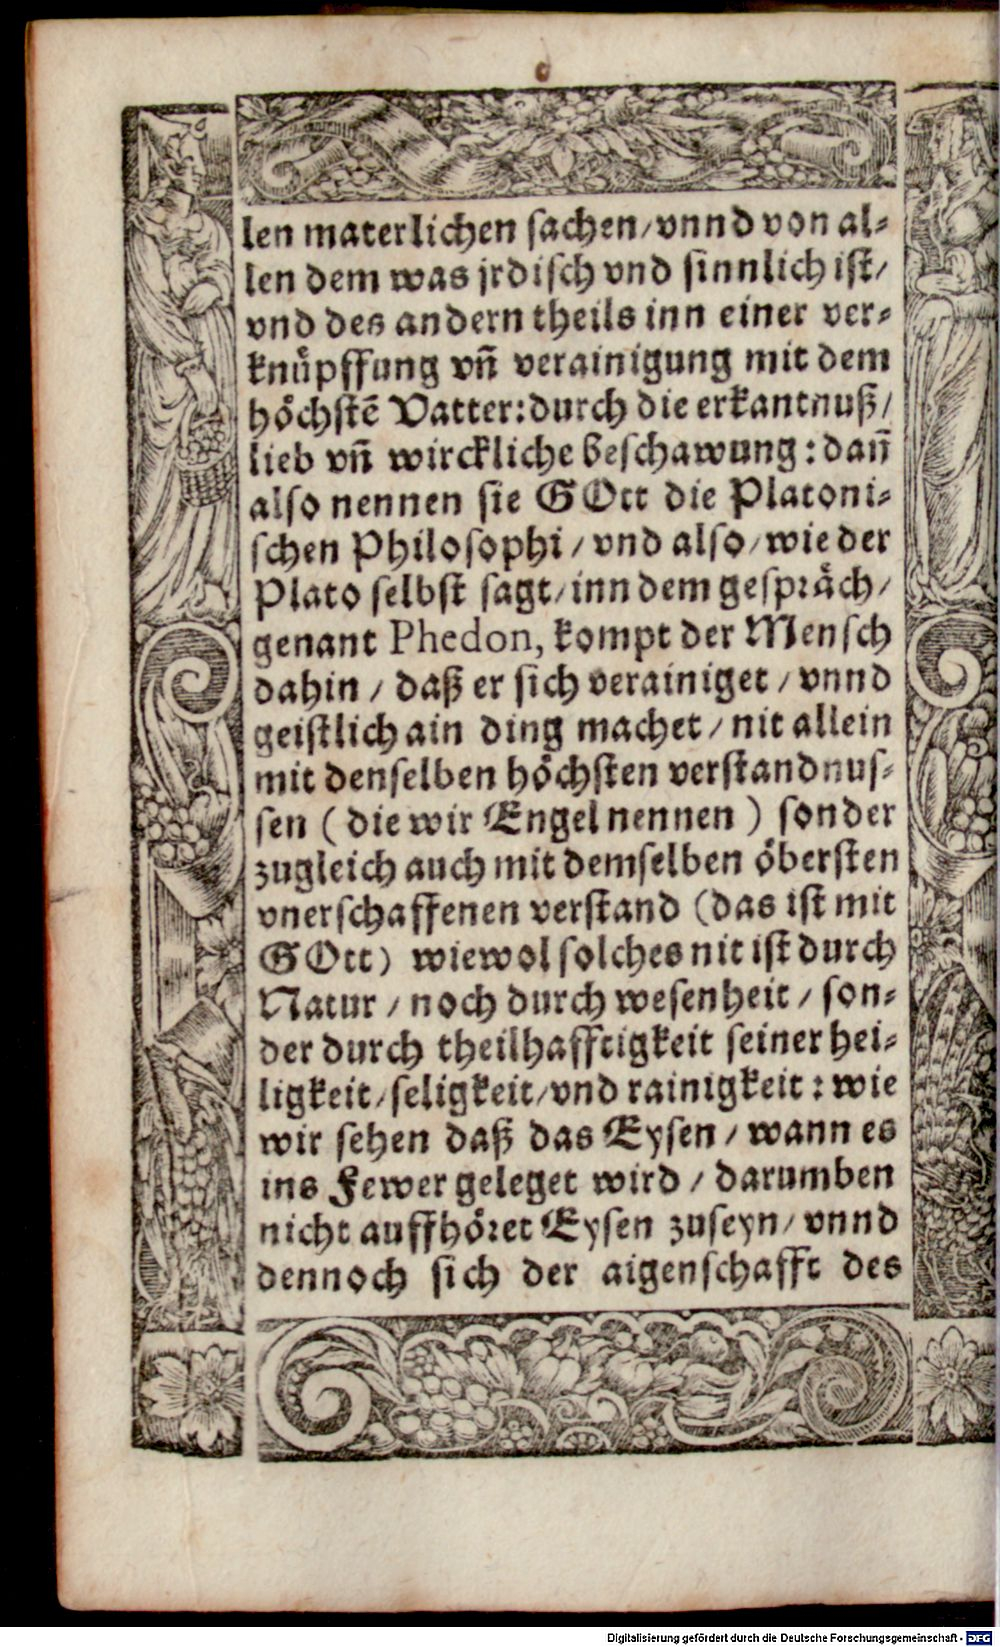 len materlichen sachen/vnnd von al⸗
len dem was jrdisch vnd sinnlich ist/
vnd des andern theils inn einer ver⸗
knüpffung vñ verainigung mit dem
höchstē Vatter: durch die erkantnuß/
lieb vñ wirckliche beschawung: dañ
also nennen sie GOtt die Platoni⸗
schen Philosophi/vnd also/wie der
Plato selbst sagt/inn dem gespräch/
genant Phedon, kompt der Mensch
dahin/daß er sich verainiget/vnnd
geistlich ain ding machet/nit allein
mit denselben höchsten verstandnus⸗
sen (die wir Engel nennen) sonder
zugleich auch mit demselben öbersten
vnerschaffenen verstand (das ist mit
GOtt) wiewol solches nit ist durch
Natur/noch durch wesenheit/son⸗
der durch theilhafftigkeit seiner hei⸗
ligkeit/seligkeit/vnd rainigkeit: wie
wir sehen daß das Eysen/wann es
ins Fewer geleget wird/darumben
nicht auffhöret Eysen zuseyn/vnnd
dennoch sich der aigenschafft des
Digitalisierung gefördert durch die Deutsche Forschungsgemeinschaft - DFG